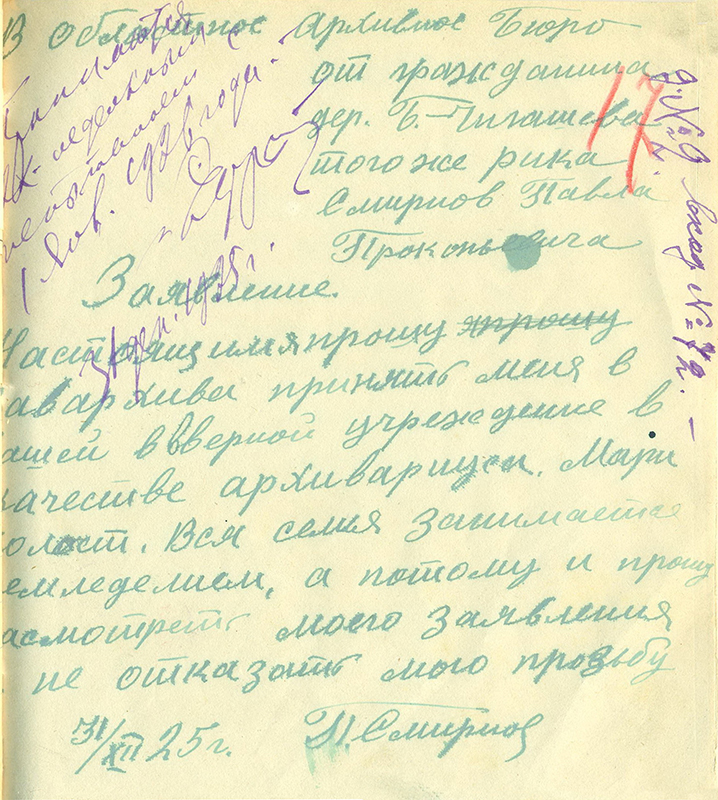 В Областное Архивное Бюро
от гражданина
дер. Б.-Чигашева
того же рика
Смирнов Павла
Прокопьевича
Заявление.
Настоящим прошу прошу
авархива принять меня в
ашей вверной учреждение в
качестве архивариуса. Мари
олост. Вся семья занимается
емледелием, а потому и прошу
асмотреть моего заявления
не отказать мою прозьбу
31/XII 25 г. П. Смирнов
Принимается
с
1 янв. 1926 года.
31/дек. 1925 г.
17
д. № 9
вход № 72. –